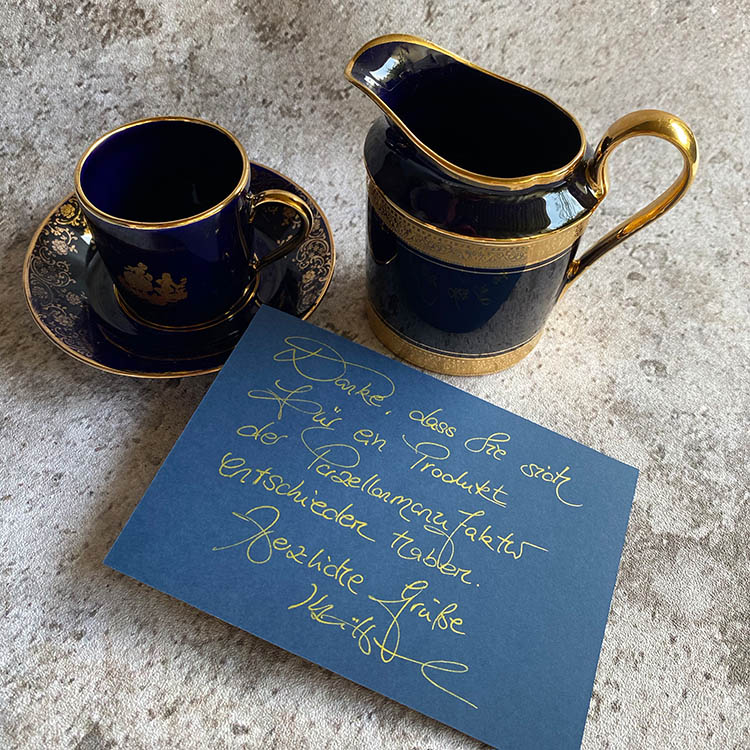 Danke, dass Sie sich
für ein Produkt
der Porzellanmanufaktur
entschieden haben.
Herzliche Grüße